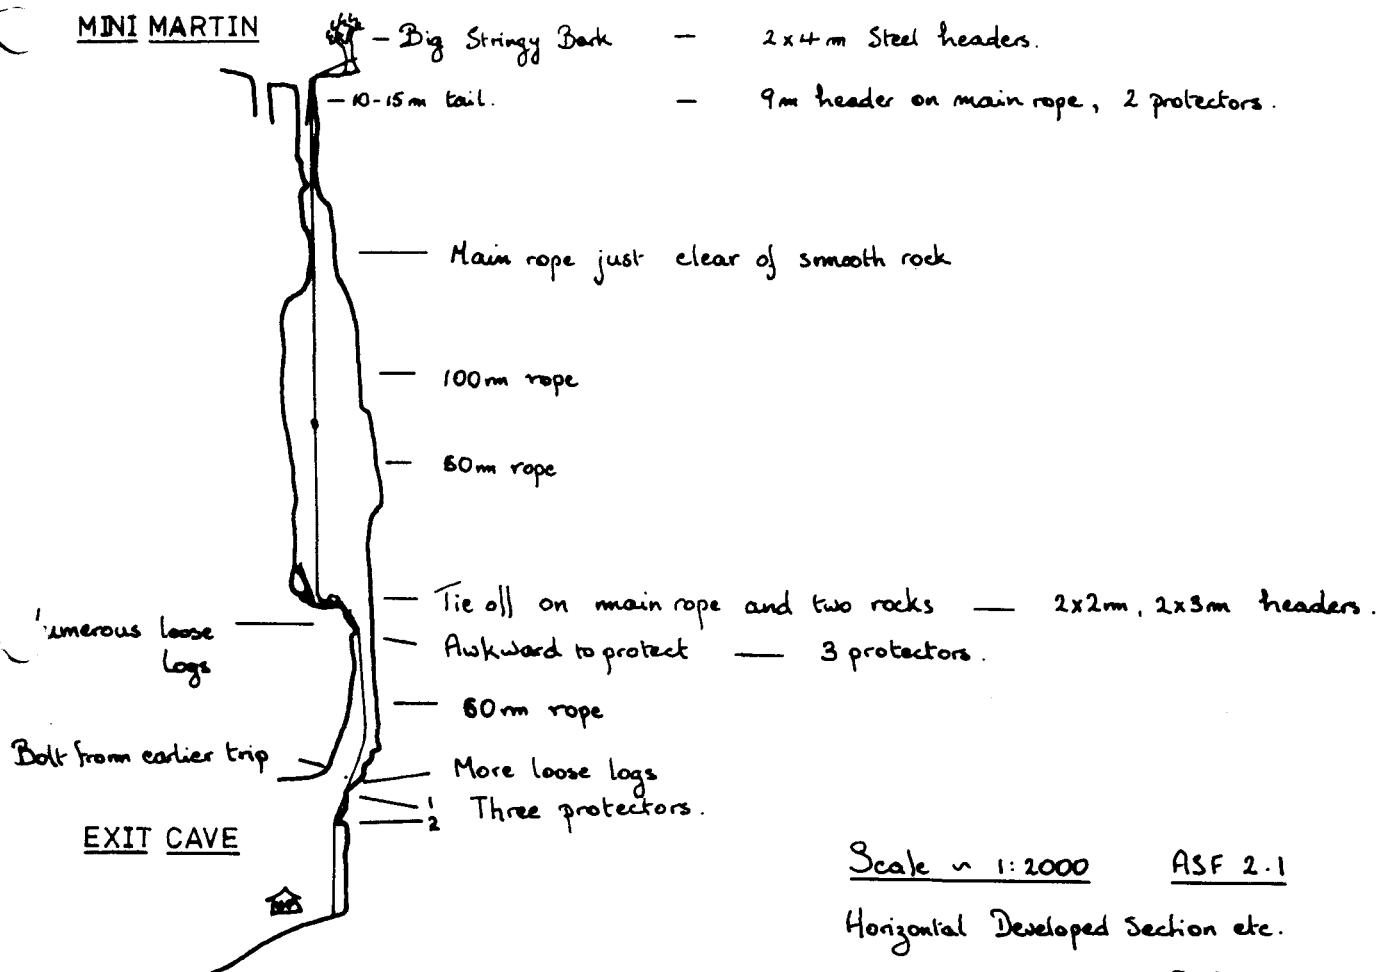 MINI MARTIN
– Big Stringy Bark – 2 x 4 m Steel headers.
– 10-15 m tail. – 9m header on main rope, 2 protectors.
Main rope just clear of smooth rock
100m rope
60m rope
Tie off on main rope and two rocks — 2x2m, 2x3m headers.
umerous loose
logs
Awkward to protect — 3 protectors.
60m rope
Bolt from earlier trip
More loose logs
1
2
Three protectors.
EXIT CAVE
Scale ~ 1:2000 ASF 2.1
Horizontal Developed Section etc.